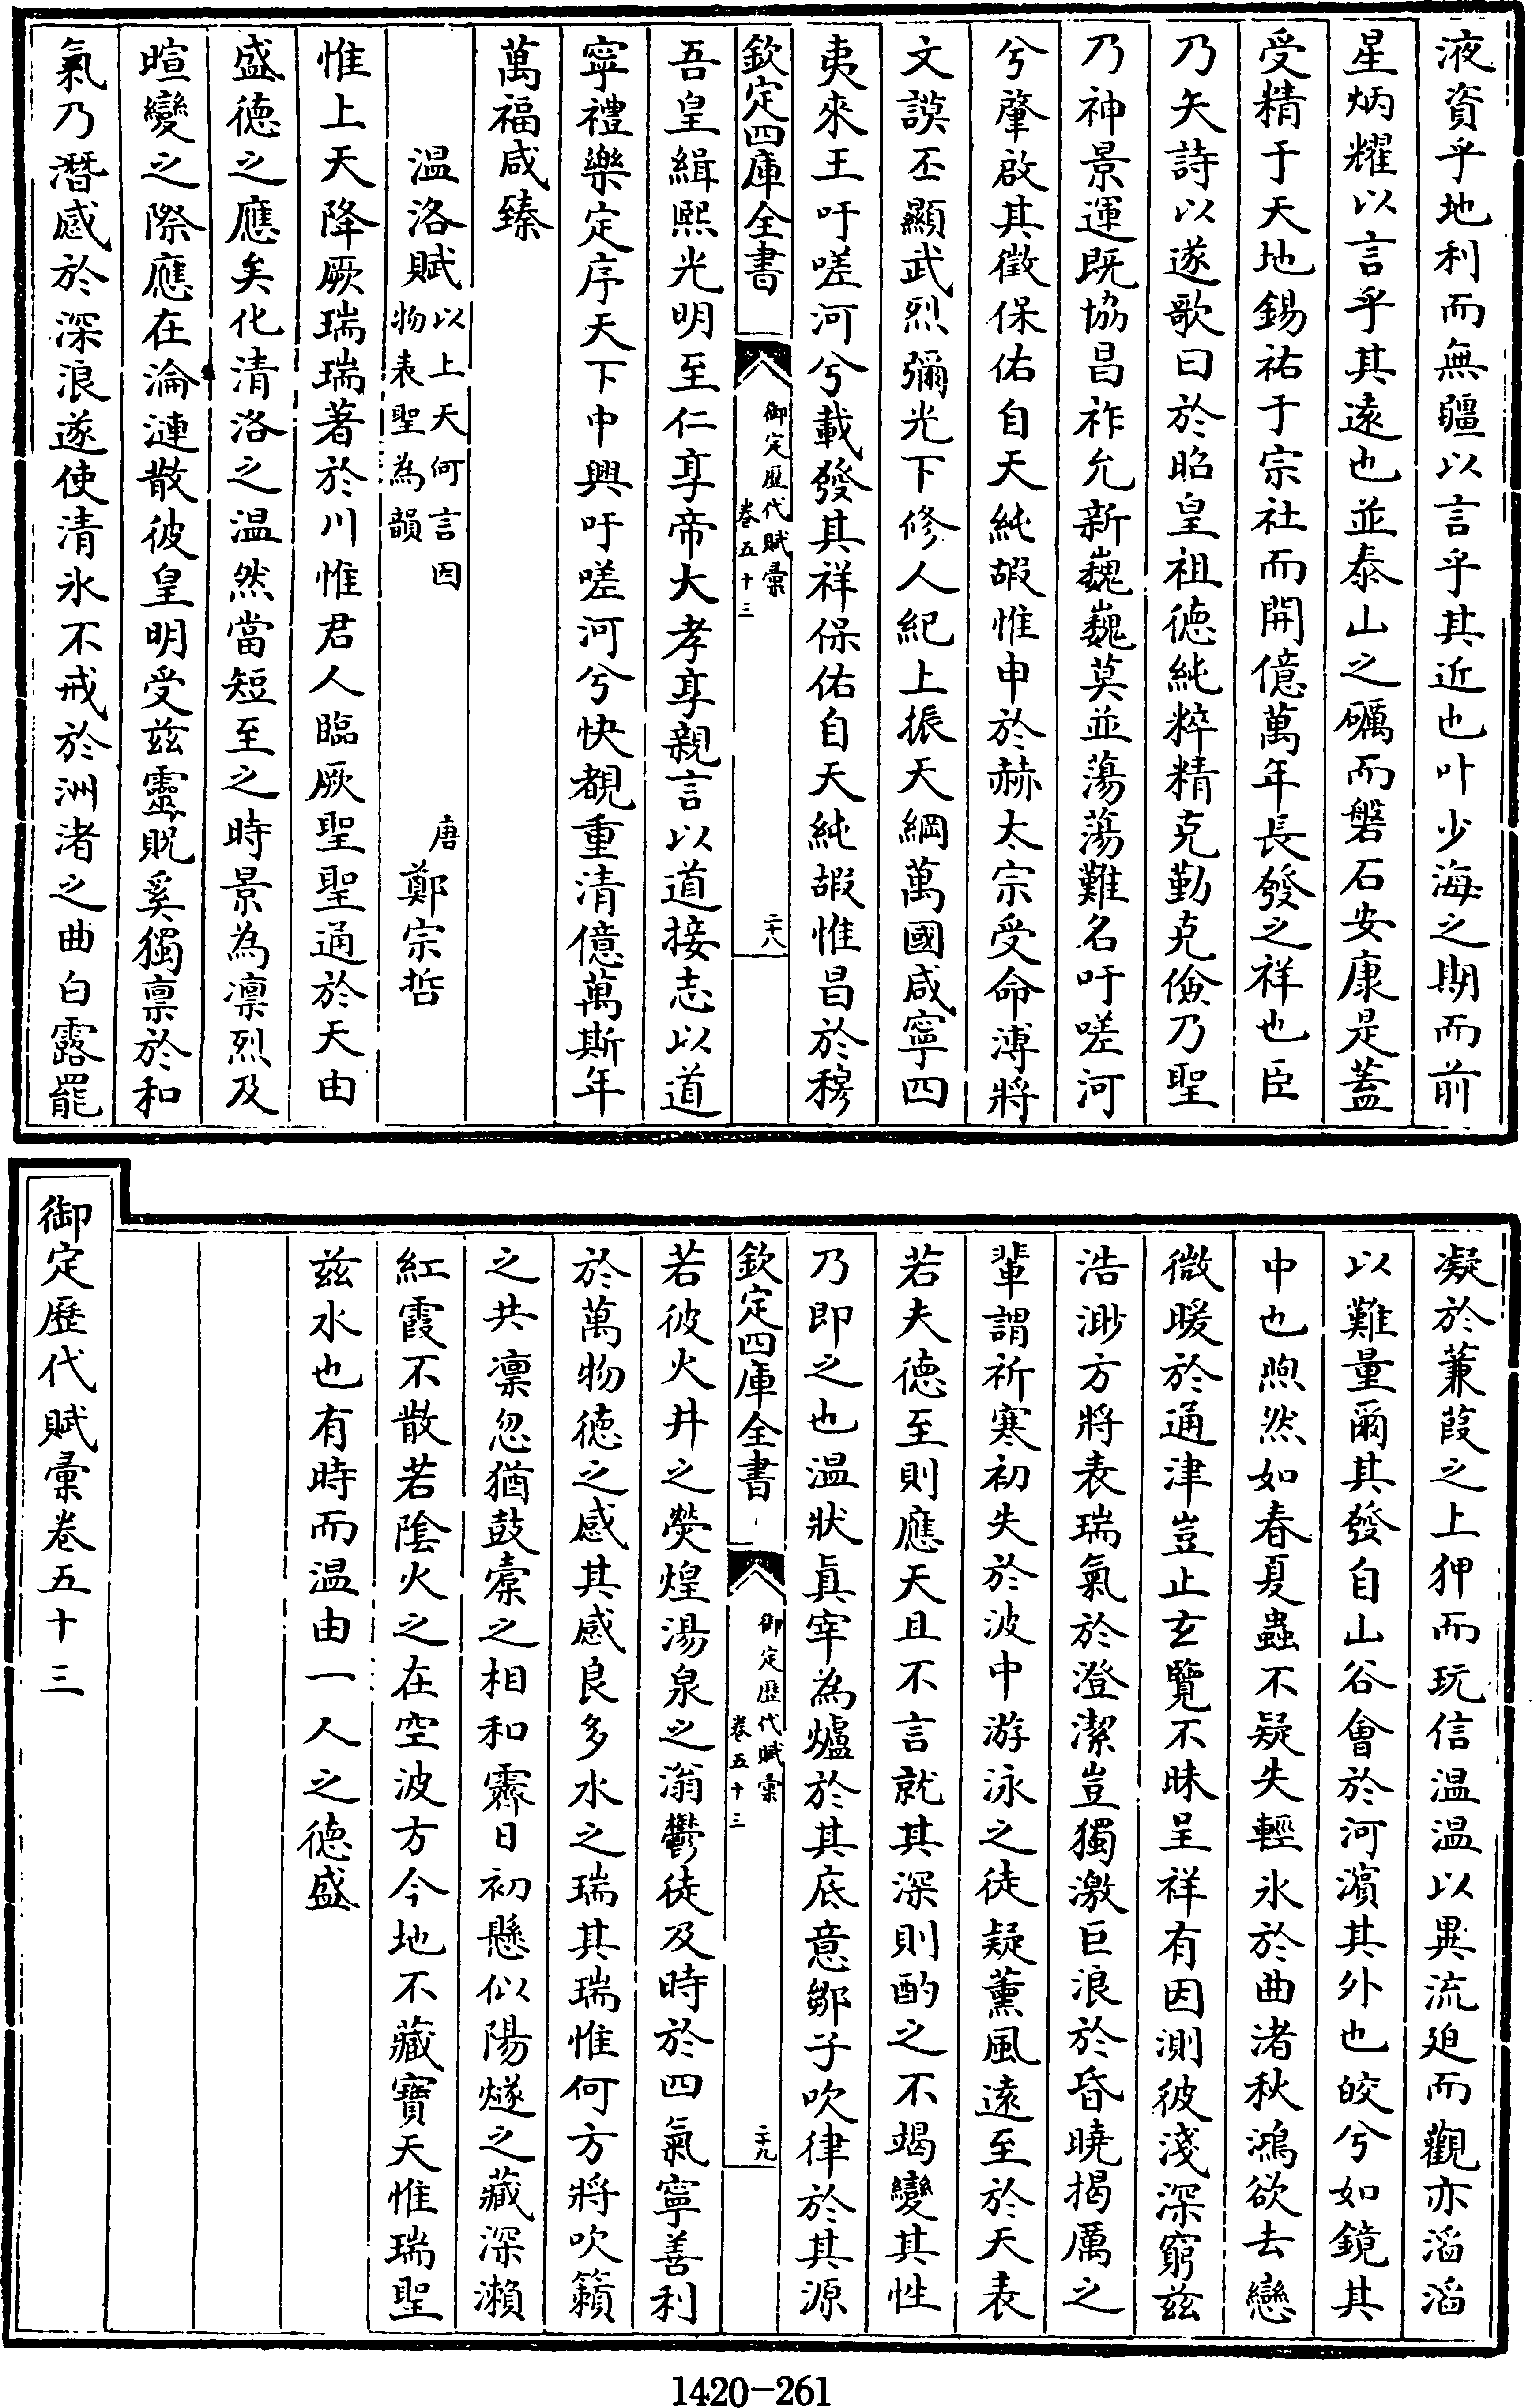 液資乎地利而無疆以言乎其近也叶少海之期而前
星炳耀以言乎其遠也並泰山之礪而磐石安康是蓋
受精于天地錫祐于宗社而開億萬年長發之祥也臣
乃矢詩以遂歌曰於昭皇祖德純粹精克勤克儉乃聖
乃神景運既協昌祚允新巍巍莫並蕩蕩難名吁嗟河
兮肇啟其徵保佑自天純嘏惟申於赫太宗受命溥將
文謨丕顯武烈彌光下修人紀上振天綱萬國咸寧四
夷來王吁嗟河兮載發其祥保佑自天純嘏惟昌於穆
欽定四庫全書
御定歷代賦彙
卷五十三
二十八
吾皇緝熙光明至仁享帝大孝享親言以道接志以道
寧禮樂定序天下中興吁嗟河兮快覩重清億萬斯年
萬福咸臻
溫洛賦以上天何言因
物表聖為韻
唐鄭宗哲
惟上天降厥瑞瑞著於川惟君人臨厥聖聖通於天由
盛德之應矣化清洛之温然當短至之時景為凛烈及
暄變之際應在淪漣散彼皇明受茲靈貺奚獨禀於和
氣乃潛感於深浪遂使清氷不戒於洲渚之曲白露罷
凝於蒹葭之上狎而玩信温温以異流廹而觀亦滔滔
以難量爾其發自山谷會於河濵其外也皎兮如鏡其
中也煦然如春夏蟲不疑失輕氷於曲渚秋鴻欲去戀
微暖於通津豈止玄覽不昧呈祥有因測彼淺深窮茲
浩渺方將表瑞氣於澄潔豈獨激巨浪於昏曉揭厲之
輩謂祈寒初失於波中游泳之徒疑薰風遠至於天表
若夫德至則應天且不言就其深則酌之不竭變其性
乃即之也温狀真宰為爐於其底意鄒子吹律於其源
欽定四庫全書
御定歷代賦彙
卷五十三
二十九
若彼火井之熒煌湯泉之滃鬱徒及時於四氣寧善利
於萬物德之感其感良多水之瑞其瑞惟何方將吹籟
之共凛忽猶鼓橐之相和霽日初懸似陽燧之藏深瀨
紅霞不散若陰火之在空波方今地不藏寶天惟瑞聖
茲水也有時而温由一人之德盛
御定歷代賦彙卷五十三
1420-261